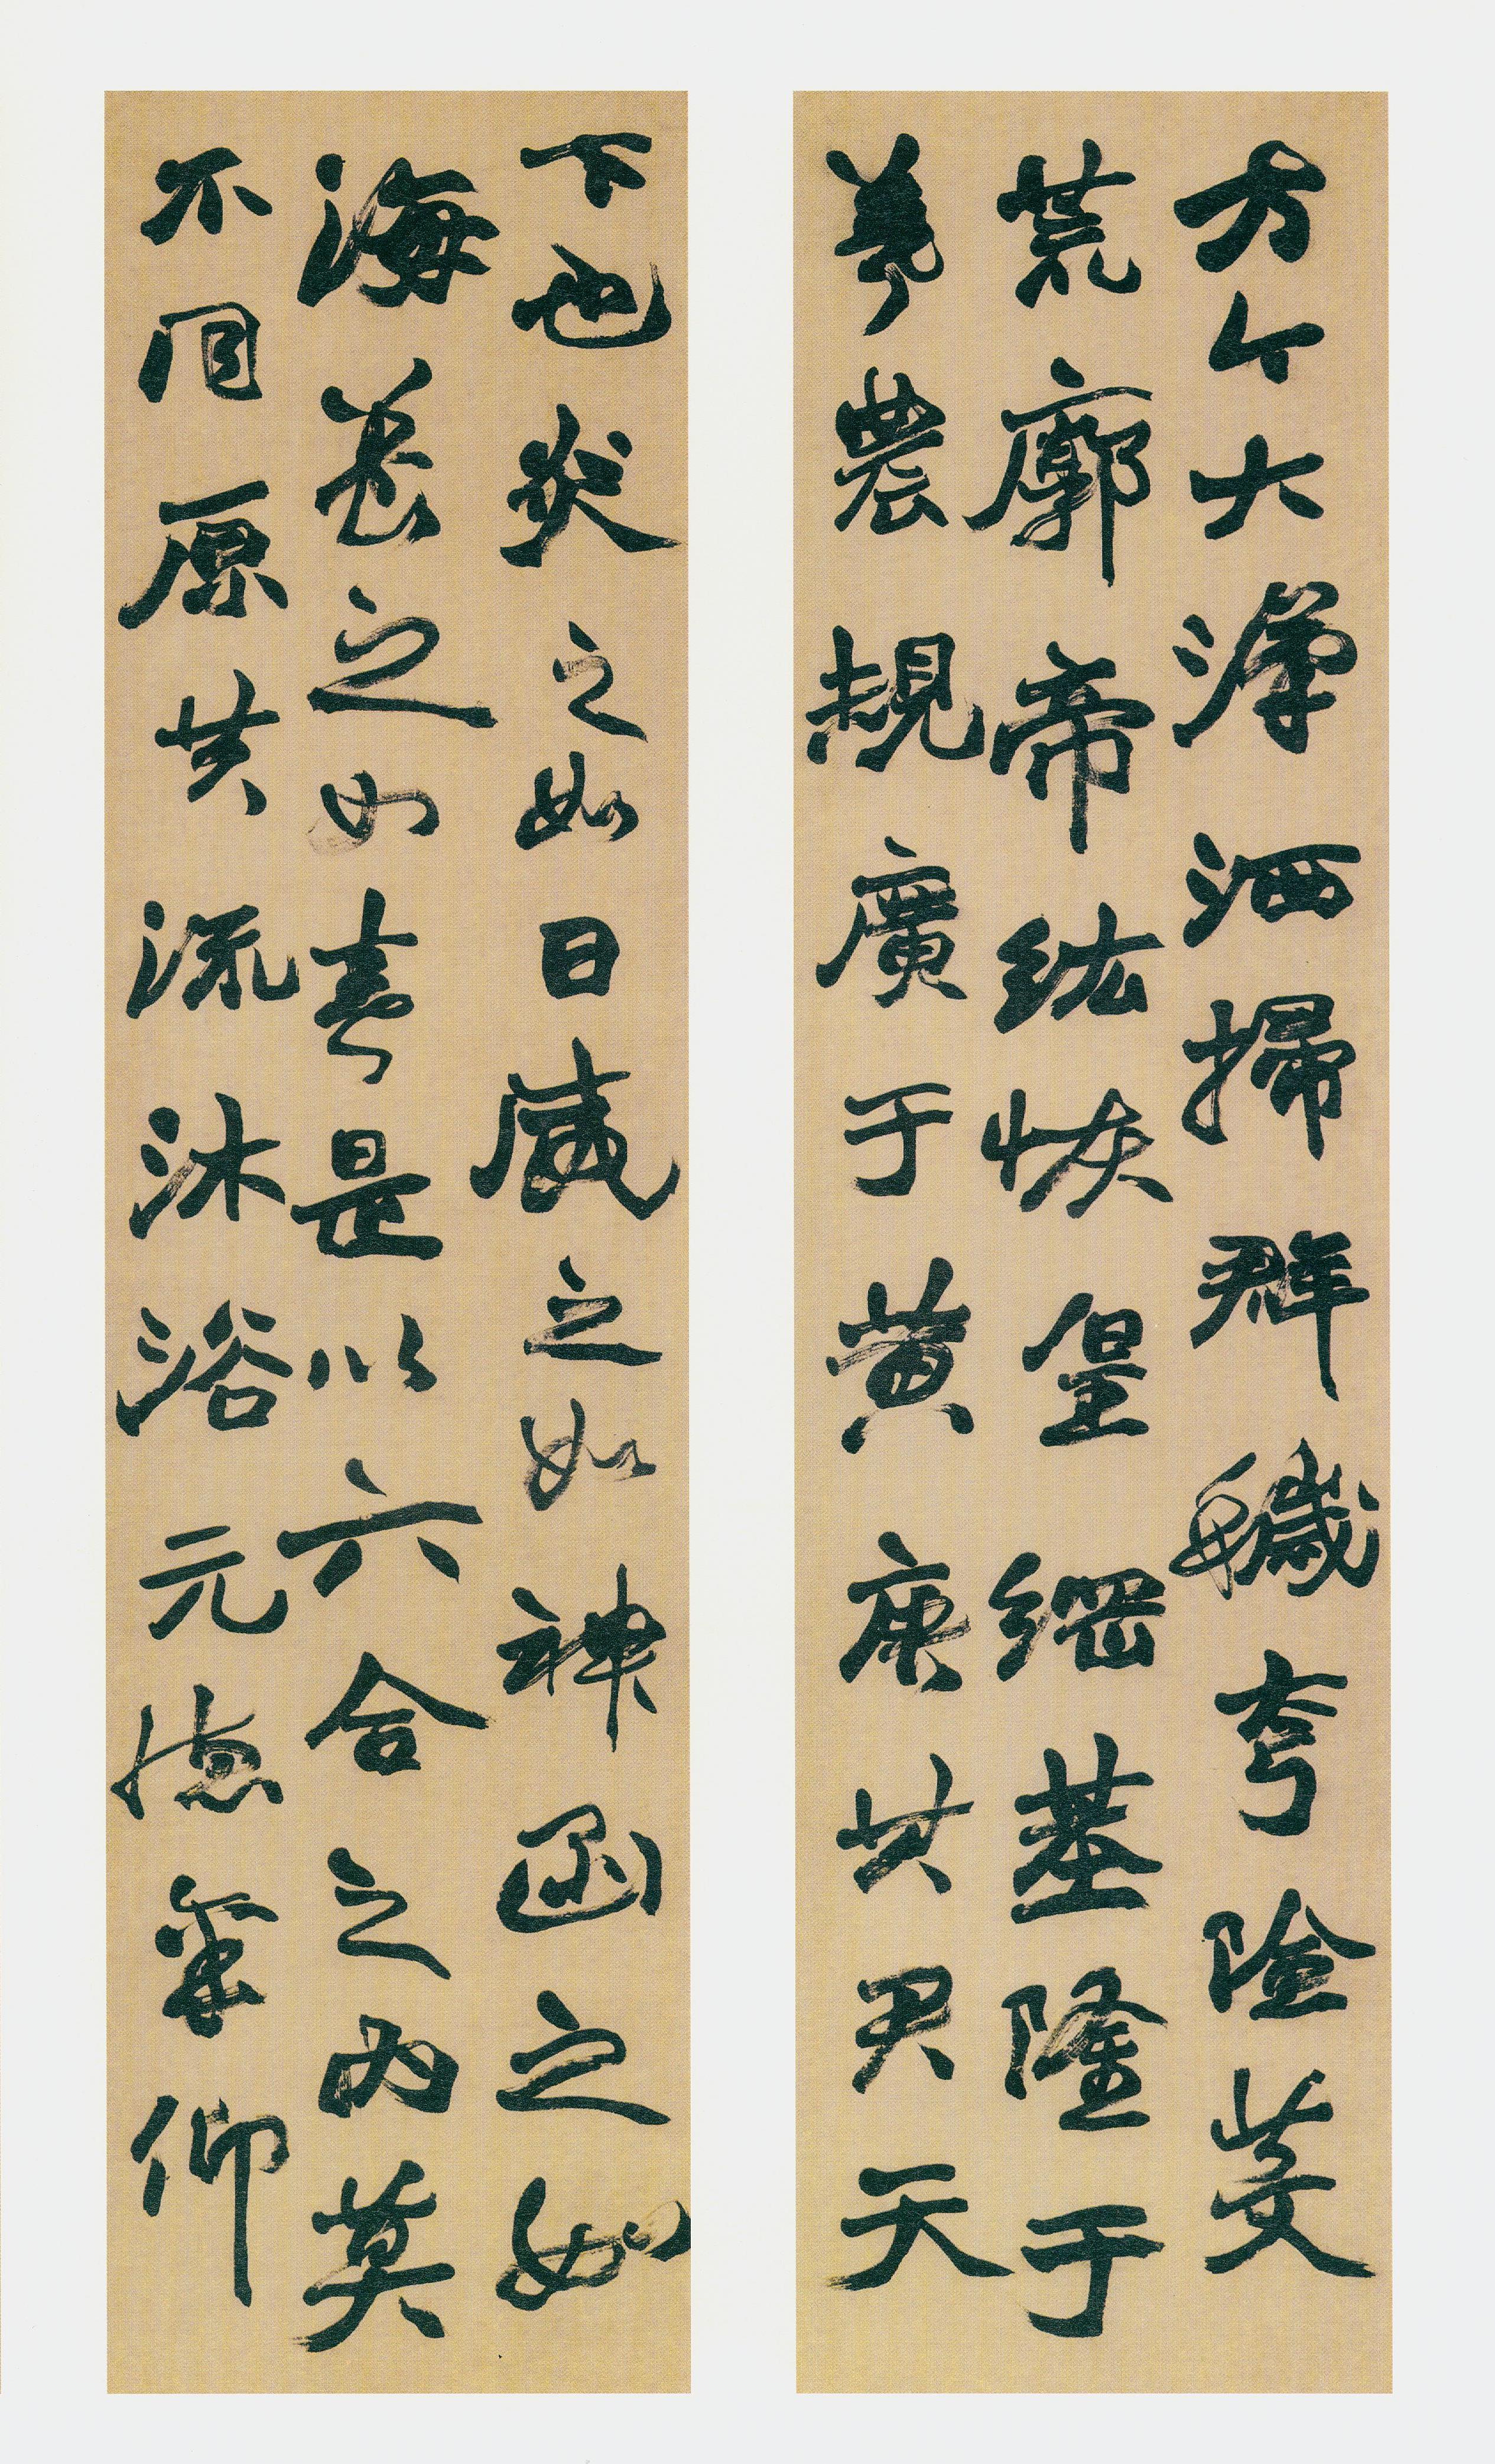 方今大漢洒掃群穢夸險芟
荒廓帝紘恢皇綱基隆于
羲農規廣于黃唐其君天
下也炎之如日威之如神函之如
海養之如春是以六合之內莫
不同原共流沐浴元德稟仰